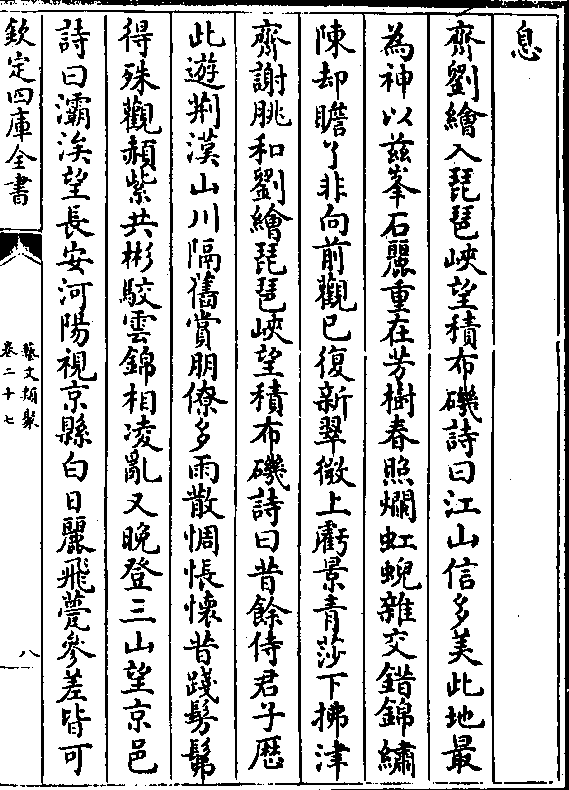 息
齊劉繪入琵琶峽望積布磯詩曰江山信多美此地最
為神以兹峯石麗重在芳樹春照爛虹蜺雜交錯錦繡
陳却瞻了非向前觀已復新翠微上虧景青莎下拂津
齊謝朓和劉繪琵琶峽望積布磯詩曰昔餘侍君子歴
此遊荆漢山川隔舊賞朋僚多雨散惆悵懷昔踐髣髴
得殊觀赬紫共彬駮雲錦相凌亂又晚登三山望京邑
詩曰灞涘望長安河陽視京縣白日麗飛甍參差皆可
欽定四庫全書
藝文類聚
卷二十七
八